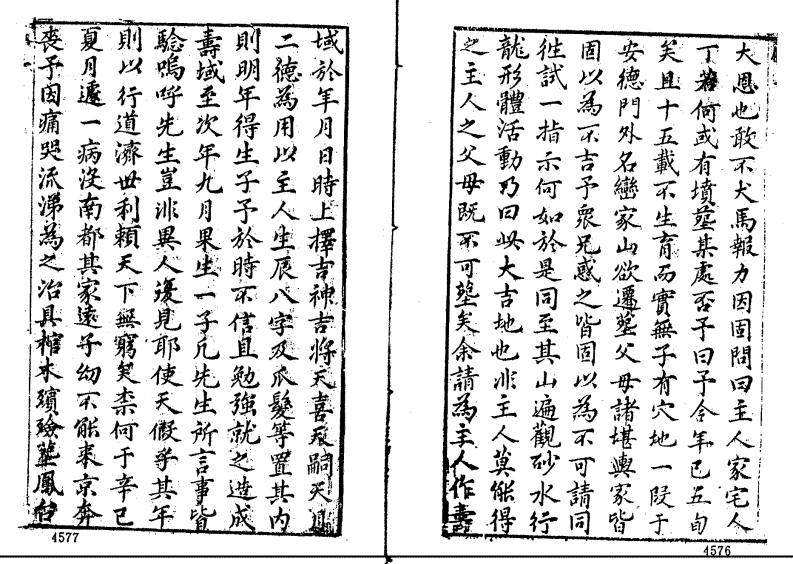 大恩也敢不犬馬報力因固問曰主人家宅人
丁若何或有墳塋某處否予曰予今年已五旬
矣且十五載不生育而實無子有穴地一段于
安德門外名巒家山欲遷塋父母諸堪輿家皆
固以為不吉予眾兄惑之皆固以為不可請同
徃試一指示何如於是同至其山遍觀砂水行
龍形體活動乃曰此大吉地也非主人莫能得
之主人之父母既不可塋矣余請為主人作壽
域於年月日時上擇吉神吉將天喜及嗣天
二德為用以主人生辰八字及爪髮等置其内
則明年得生子予於時不信且勉強就之造成
壽域至次年九月果生一子凡先生所言事皆
驗嗚呼先生豈非異人復見耶使天假乎其年
則以行道濟世利賴天下無窮矣柰何于辛已
夏月遽一病没南都其家遠子幼不能來京奔
喪予因痛哭流涕為之治具棺木殯殮塟鳳台
4577
4576